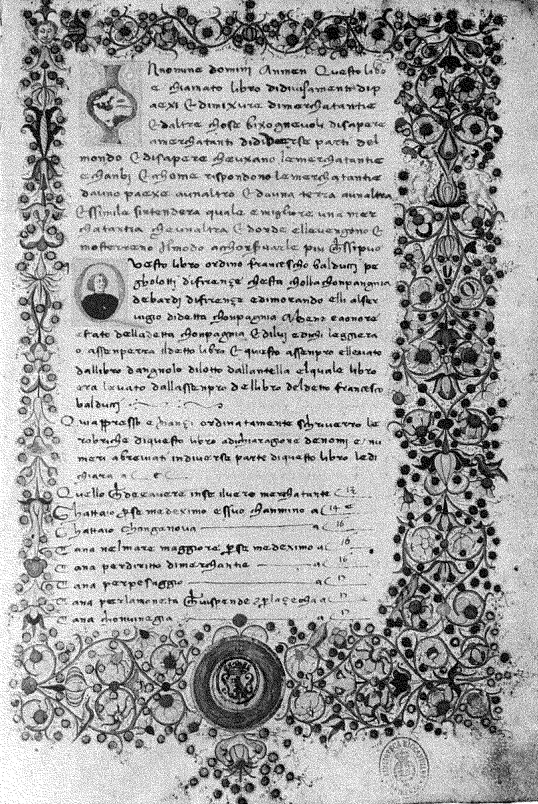 In nomine domini Anmen Questo libro
e chianato libro di divisamenti di p
aexi E di mixure di merchatantie
E daltre chose bixognevoli di sapere
a merchatanti di diverse parti del
mondo E di sapere che uxano le merchatantie
e chanbi E chome rispondono le merchatantie
da uno paexe a unaltro E da una terra a unaltra
E ssimile s intendera quale e migliore una mer
chatantia che unaltra E donde elle vengono E
mosterreno il modo a chonservarle piu che ssi puo
Questo libro ordino francescho balducci pe
gholotti di firenze che sta cholla chonpangnia
de bardi di firenze e dimorando elli al ser
vigio di detta chonpangnia A bene e a onore
e stato della detta chonpagnia E di lui e di chi leggiera
o assenpera il detto libro E questo assenpro ellevato
dal libro dangnolo di lotto dallantella el quale libro
era levato dall assenpro dellibro del detto francesco
balducci
Qui appresso e inanzi ordinatamente schriverro le
robriche di questo libro a dichiaragone de nomi e nu
meri abreviati in diverse parte di questo libro le di
chiara a
Quello che de avere in se il vero merchatante 12
Ghattaio per se medeximo e ssuo chanmino a 14
Ghattaio changanova a 16
Tana nel mare maggiore per se medeximo a 16
Tana per diritto di merchantie a 16
Tana per pesaggio a 17
Tana per la moneta che vi spende a 17
Tana chon vinegia a 17